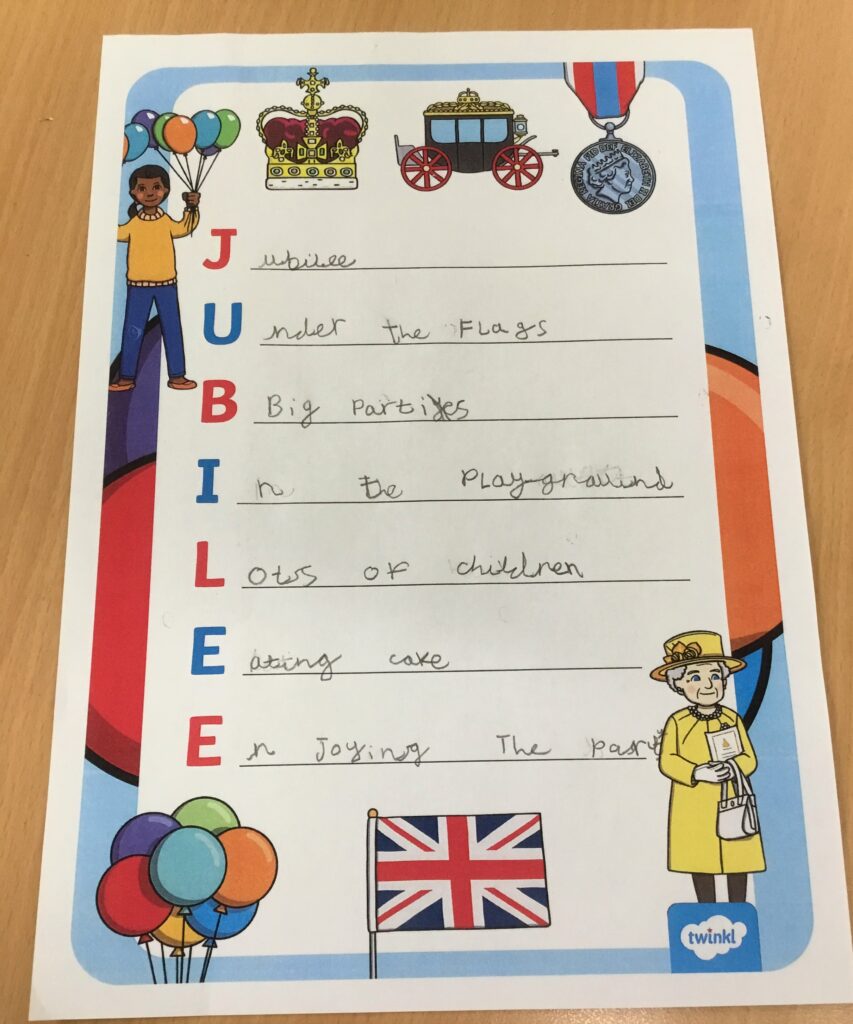 Jubilee
Under the Flags
B Big Partiyes
In the Playground
Lots of children
Eating cake
En Joying The Party
twinkl